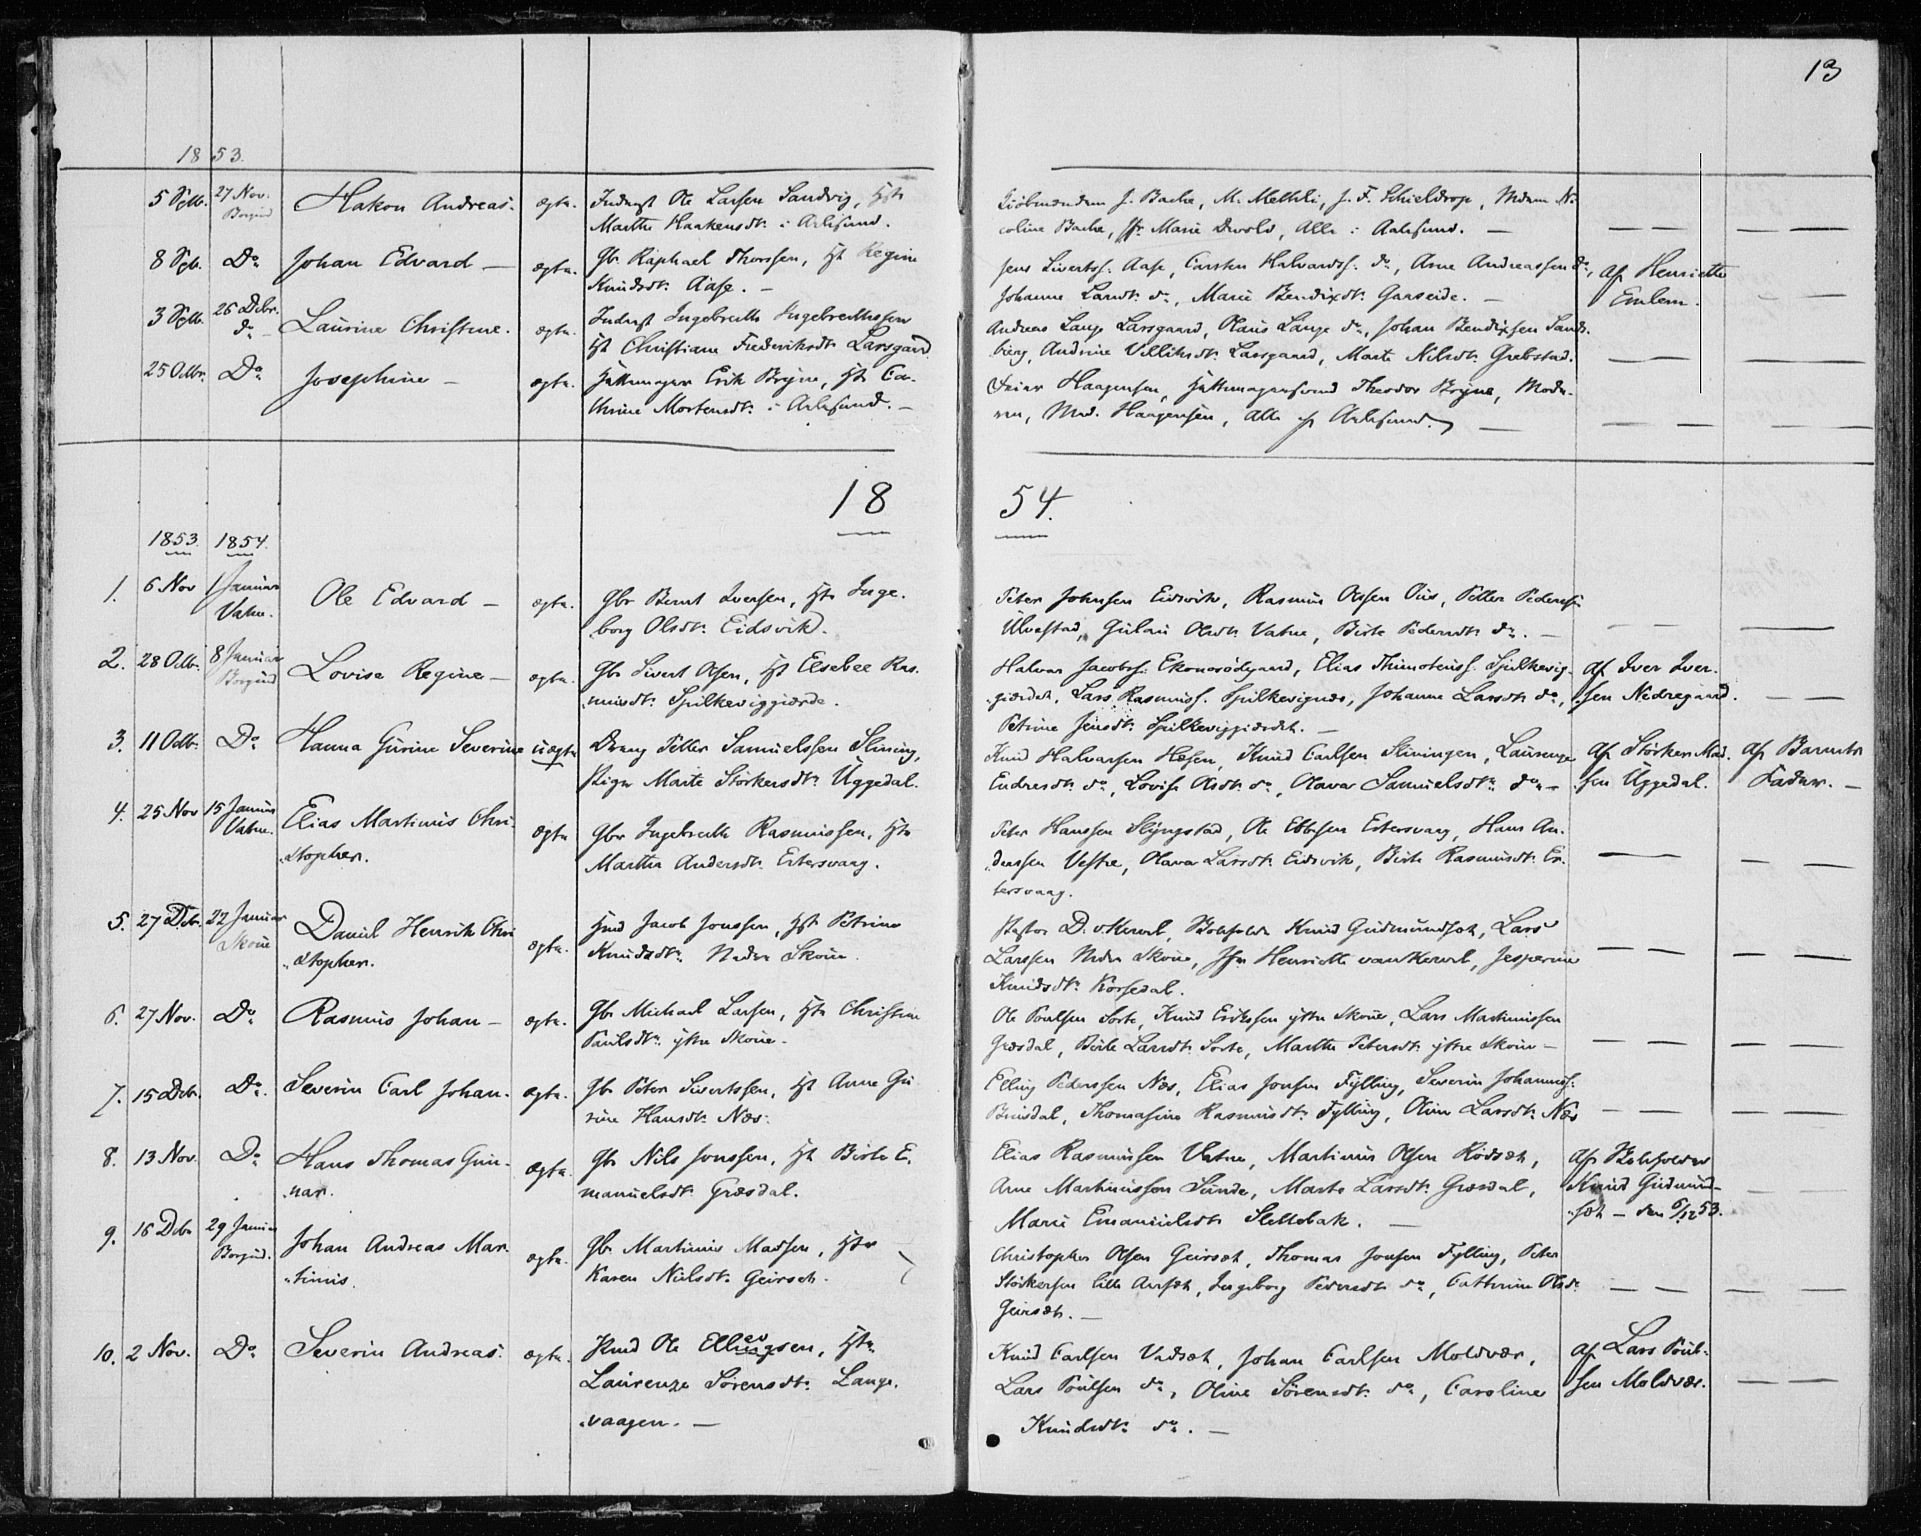 13
1853.
5 Spb. 27 Nov. Borgund Hakon Andreas. ægte. Inderst Ole Larsen Sandvig, H
Marthe Haakensdtr. i Aalesund.
J. Bache, M. J. F. Schieldrop, Mdm Ni-
coline Bache, Jfr. Marie Alle i Aalesund. —
8 Spb. Do Johan Edvard — ægte. Gbr. Raphael Thorssen, H Regine
Knudsdt. Aase. —
Jens Sivertss. Aase, Carsten Halvardss. do, Arne Andreassen do,
Johanne Larsdt. do, Marie Bendixdt. Gaaseide. —
af Henriette
Emlem.
3 Spb. 26 Debr. do Laurine Christine. ægte. Inderst Ingebreth Ingebrethssen
H Christiane Frederiksdt. Larsgaard
Andreas Lange Larsgaard, Olaus Lange do, Johan Bendixsen Sands-
bierg, Andrine Larsgaard, Marte Nilsdt. Grebstad.
25 Octbr. Do Josephine — ægte. Hattemager Erik Bryne, H Ca-
thrine Mortensdt. i Aalesund. —
Haagensen, Theodor Bryne, Mode-
ren, Mad. Haagensen, Alle af Aalesund. —
1854.
1853. 1854.
1. 6 Nov 1 Januar Vatne. Ole Edvard — ægte. Gbr Bernt Iversen, H Inge-
borg Olsdt. Eidsvik.
Peter Johnsen Eidsvik, Rasmus Olsen Petter Peders
Ulvestad, Olsdt. Vatne, Birte Pedersdt. do. —
2. 28 Octb. 8 Januar Borgund Lovise Regine — ægte. Gbr Sivert Olsen, H Elsebee Ras-
musdt. Spilkeviggierde.
Halvor Jacobss. Elias Thimoteuss. Spilkevig-
gierdet, Lars Rasmuss. Spilkevignæs, Johanne Larsdt. do,
Petrine Jensdt. Spilkeviggierdet. —
af Iver Iver-
sen Nedregaard.
3. 11 Octb. Do Hanna Gurine Severine uægte Dreng Petter Samuelssen Slining,
Pige Marte Störkersdt. Uggedal.
Knud Halvorsen Hesen, Knud Carlsen Sliningen, Laurenze
Endresdt. do, Lovise Olsdt. do, Olava Samuelsdt. do —
af Störker Mad-
sen Uggedal.
af Barnets
Fader. —
4. 25 Nov 15 Januar Vatne. Elias Martinus Chri-
stopher. ægte Gbr Ingebreth Rasmussen, H
Marthe Andersdt. Estersvaag.
Peter Hanssen Slyngstad, Ole Ebbesen Estersvaag, Hans An-
derssen Vestre, Olava Larsdt. Eidsvik, Birte Rasmusdt. Es-
tersvaag.
5. 27 Debr. 22 Januar Skoue Daniel Henrik Chri
stopher. ægte. Hmd Jacob Jonssen, H Petrine
Knudsdt. Nedre Skoue.
Pastor D. v Kervel, Knud Gudmundsæt, Lars
Larssen Nedre Skoue, Jfr Henriette van Kervel, Jesperine
Knudsdt. Korsedal.
6. 27 Nov. Do Rasmus Johan — ægte. Gbr Michael Larsen, H Christine
Paulsdt. ytre Skoue.
Ole Poulsen Sorte, Knud Erikssen ytre Skoue, Lars Martinussen
Græsdal, Birte Larsdt. Sorte, Marthe Petersdt. ytre Skoue —
7. 15 Debr. Do. Severin Carl Johan. ægte. Gbr Peter Sivertssen, H Anne Gu-
rine Hansdt. Næs.
Elling Pederssen Næs, Elias Jonsen Fylling, Severin Johanness.
Thomasine Rasmusdt. Fylling, Oline Larsdt. Næs
8. 13 Nov. Do Hans Thomas Gun-
nar. ægte. Gbr Nils Jonssen, H Birte E-
manuelsdt. Græsdal.
Elias Rasmussen Vatne, Martinus Olsen Rödsæt,
Arne Martinussen Sunde, Marte Larsdt. Græsdal,
Marie Emanuelsdt. Slettebak. —
af
Knud Gudmund-
sæt — den 6/12 53.
9. 16 Debr 29 Januar Borgund. Johan Andreas Mar-
tinus. ægte. Gbr. Martinus Madsen, H
Karen Nielsdt. Geirsæt.
Christopher Olsen Geirsæt, Thomas Jonsen Fylling, Peter
Störkersen lille Aarsæt, Ingeborg Pedersdt. do, Cathrine Olsdt.
Geirsæt. —
10. 2 Nov. Do Severin Andreas. ægte. Hmd Ole Ellingsen, H
Laurenze Sörensdt. Lange-
vaagen. —
Knud Carlsen Vedsæt, Johan Carlsen Moldvær,
Lars Poulsen do, Oline Sörensdt. do, Caroline
Knudsdt. do. —
af Lars Poul-
sen Moldvær.